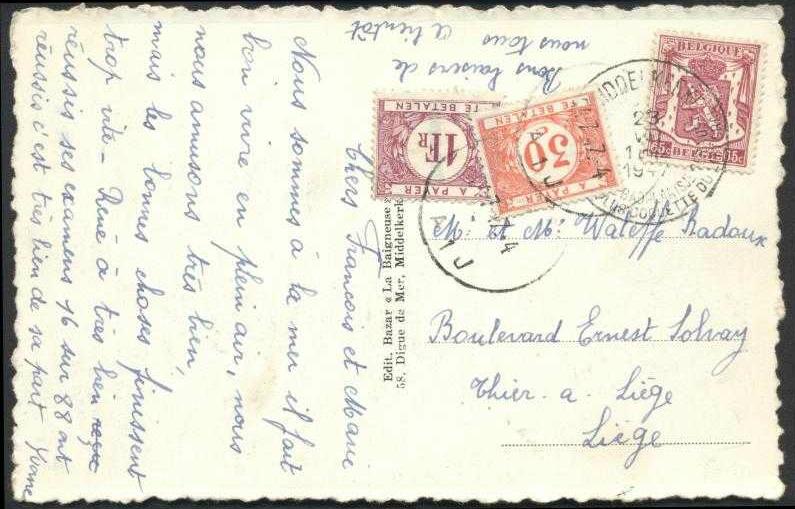 Chers François et Marie
Nous sommes à la mer il fait
bon vivre en plein air, nous
nous amusons très bien,
mais les bonnes choses finissent
trop vite - René à très bien
réussis ses examens 76 sur 88 ont
réussis c'est très bien de sa part Yvonne
Bons baisers de
nous tous
A bientôt
Edit. Bazar « La Baigneuse »
58, Digue de Mer, Middelkerke
TE BETALEN
1FR
A PAYER
TE BETALEN
30
A PAYER
BELGIQUE
65c BELGIË 65c
MIDDELKERKE
23
1947
M. et Me Waleffe Radoux
Boulevard Ernest Solvay
Thier-a-Liège
Liège